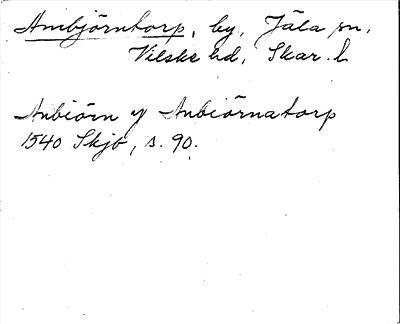 Ambjörntorp, by, Jäla sn,
Vilske hd, Skar. l.
Anbiörn y Anbiörnatorp
1540 Skjb, s. 90.